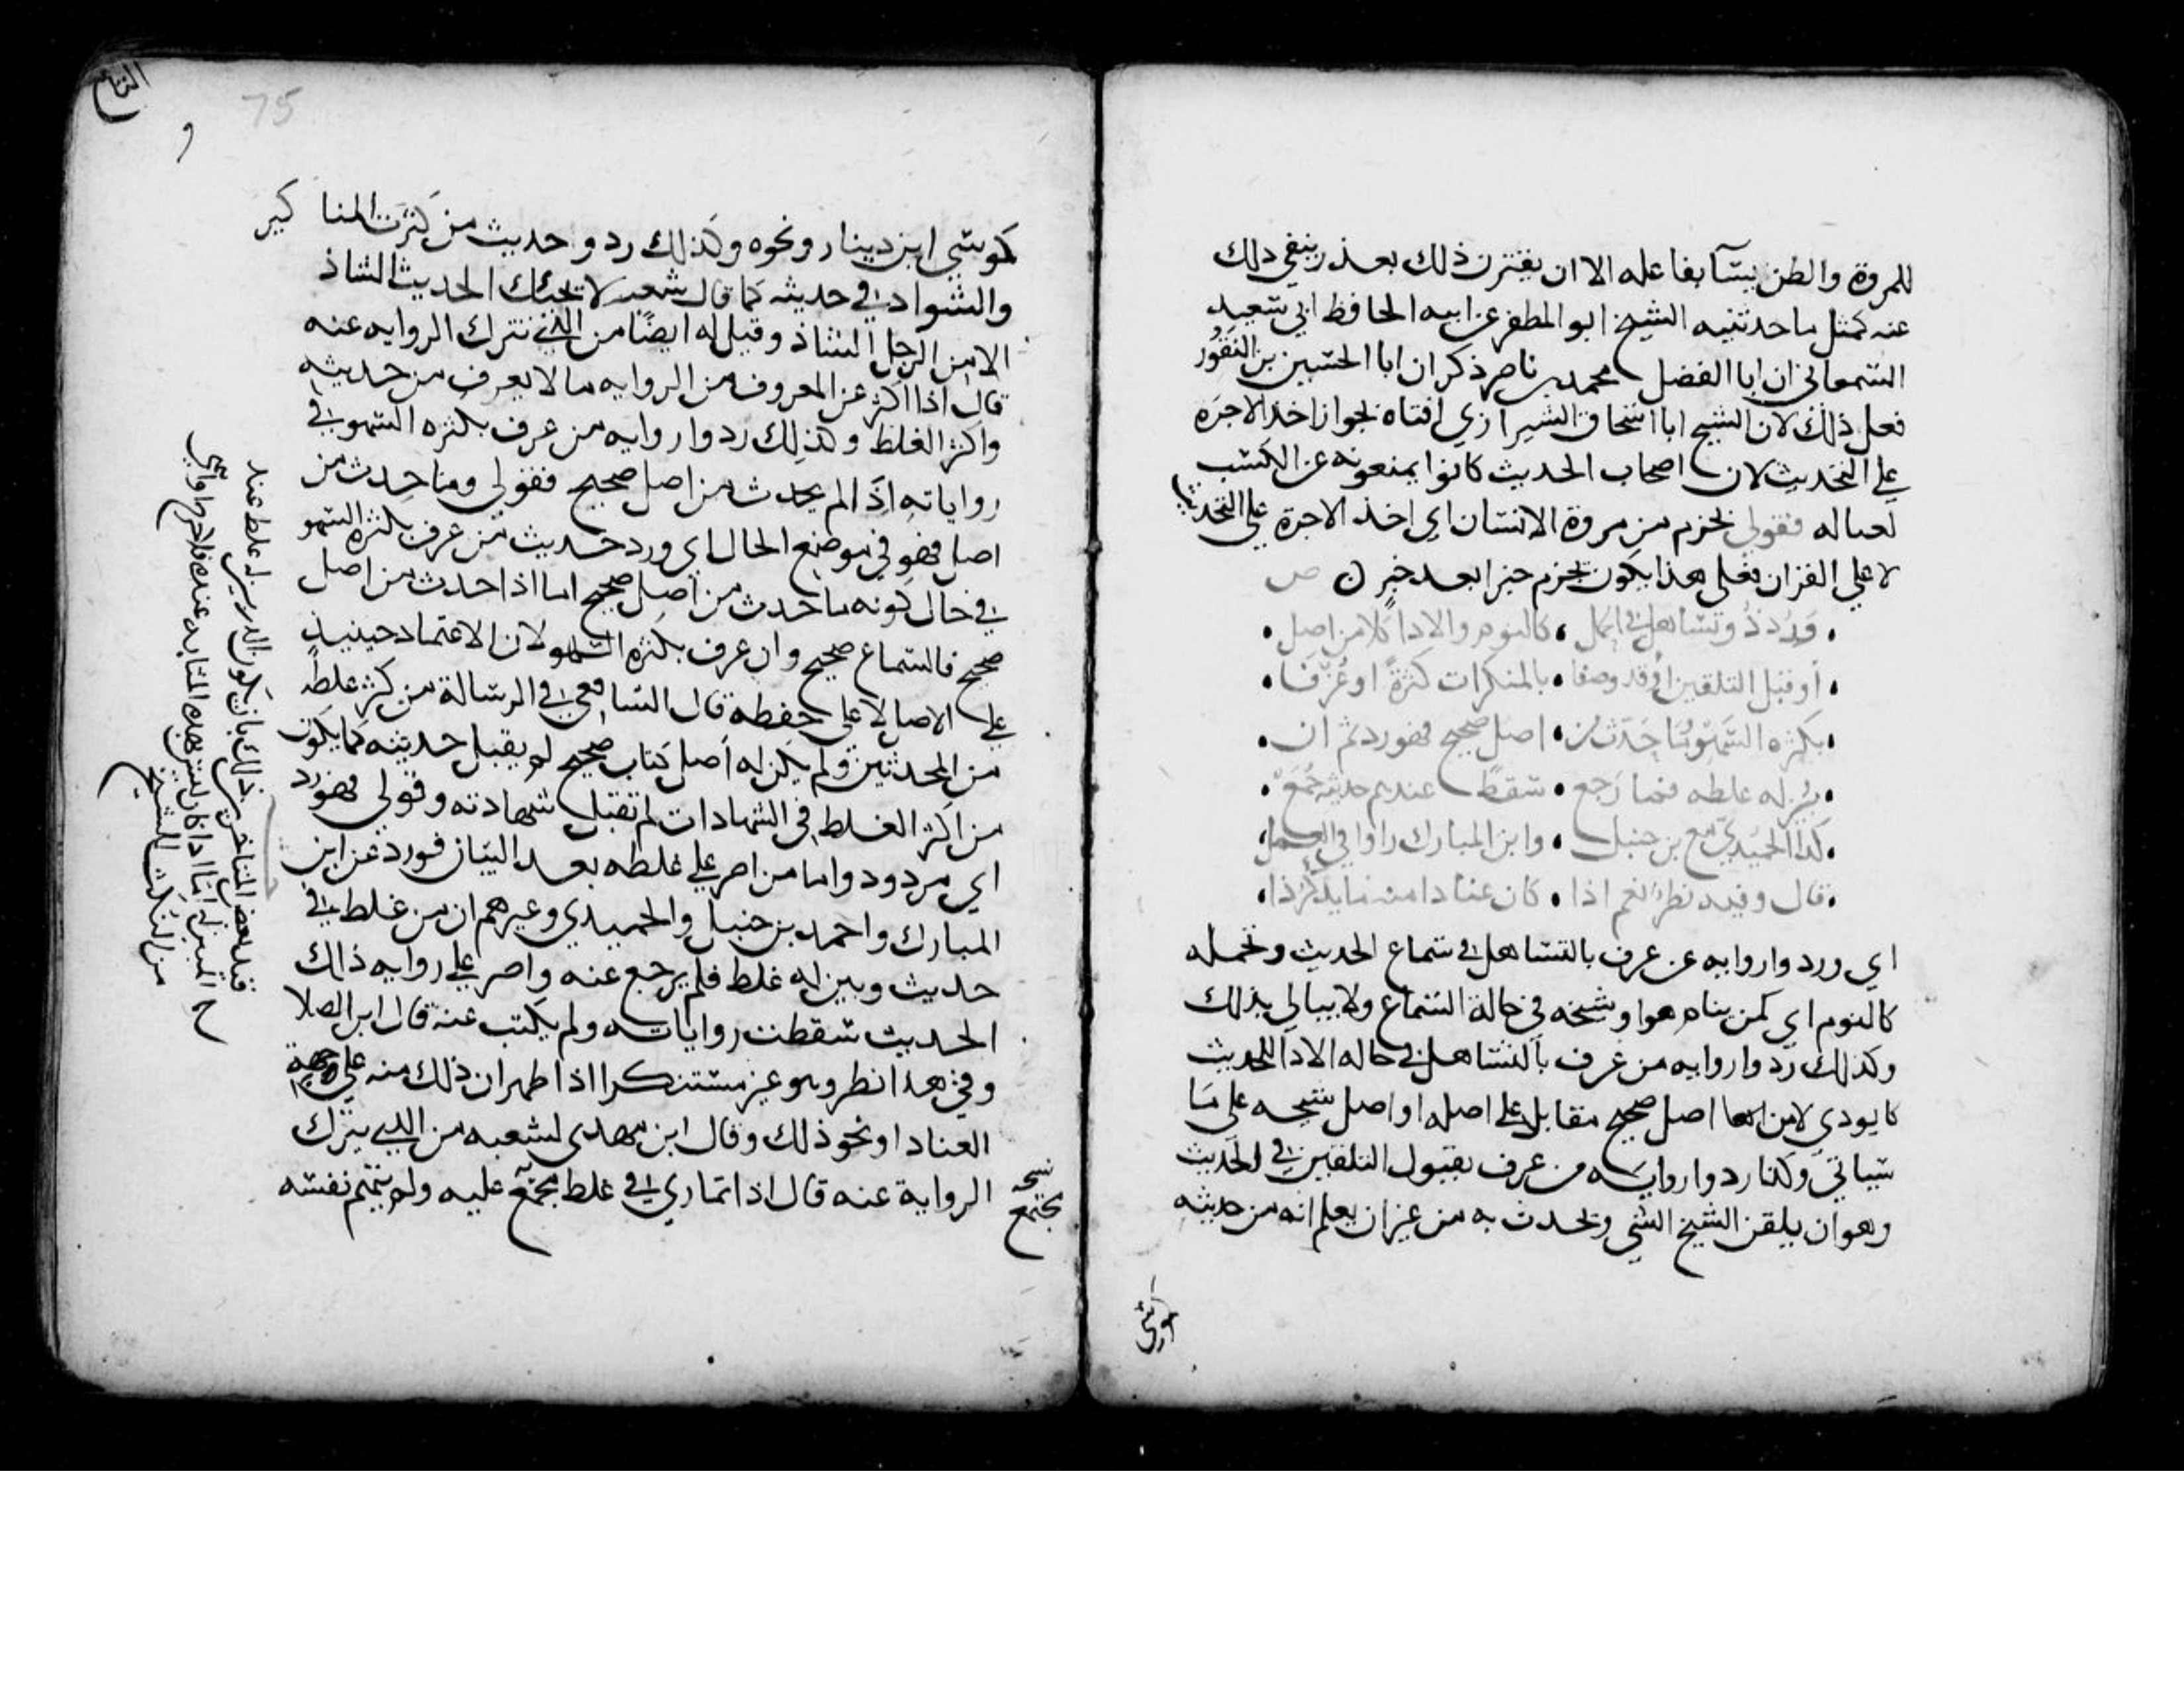 للمروة والظن يسآ بفاعله الا ان يقترن ذلك بعذر ينفي ذلك
عنه كمثل ما حدثنيه الشيخ ابو المظفر عن ابيه الحافظ ابي سعيد
السمعاني ان ابا الفضل محمد بن ناصر ذكر ان ابا الحسين بن النقور
فعل ذلك لان الشيخ ابا اسحاق الشيرازي افتاه بجواز اخذ الاجرة
علي التحديث لان اصحاب الحديث كانوا يمنعونه عن الكسب
لعياله فقولي لخرم من مروة الانسان اي اخذ الاجرة علي التحديث
لا علي القران فعلي هذا يكون لخرم خبرا بعد خبر ص
وردذو تساهل في الحمل كالنوم والادا كلا من اصل
او قبل التلقين او قد وصفا بالمنكرات كثرة او عرفا
بكثره السهو وما حدث من اصل صحيح فهو رد ثم ان
بين له غلطه فما رجع سقط عندهم حديثه جمع
كذا الحميدي مع بن حنبل وابن المبارك راوا في العمل
قال وفيه نظر نعم اذا كان عنادا منه ما ينكر ذا
اي وردوا روايه من عرف بالتساهل في سماع الحديث وتحمله
كالنوم اي كمن ينام هو او شيخه في حالة السماع ولا يبالي بذلك
وكذلك ردوا روايه من عرف بالتساهل في حاله الادا للحديث
كا يودي لا من اصل صحيح مقابل علي اصله او اصل شيخه علي ما
سياتي وكذا ردوا روايه من عرف بقبول التلقين في الحديث
وهو ان يلقن الشيخ الشي ويحدث به من غير ان يعلم انه من حديثه
كموسي
75
كموسي ابن دينار ونحوه وكذلك ردوا حديث من كثرت المناكير
والشواذ في حديثه كما قال شعبه لا يجئك الحديث الشاذ
الا من الرجل الشاذ وقيل له ايضا من الذي نترك الروايه عنه
قال اذا اكثر عن المعروف من الروايه ما لا يعرف من حديثه
واكثر الغلط وكذلك ردوا روايه من عرف بكثره السهو في
رواياته اذا لم يحدث من اصل صحيح فقولي وما حدث من
اصل فهو في موضع الحال اي ورد حديث من عرف بكثره السهو
في حال كونه ما حدث من اصل صحيح اما اذا حدث من اصل
صحيح فالسماع صحيح وان عرف بكثره السهو لان الاعتماد حينيذ
علي الاصل لا علي حفظه قال الشافعي في الرسالة من كثر غلطه
من المحدثين ولم يكن له اصل كتاب صحيح لم يقبل حديثه كما يكون
من اكثر الغلط في الشهادات لم تقبل شهادته وقولي فهو رد
اي مردود واما من اصر علي غلطه بعد البيان فورد عن ابن
المبارك واحمد بن حنبل والحميدي وغيرهم ان من غلط في
حديث وبين له غلط فلم يرجع عنه واصر علي روايه ذلك
الحديث سقطت رواياته ولم يكتب عنه قال ابن الصلا
وفي هذا نظر وهو غير مستنكر اذا ظهر ان ذلك منه علي جهة
العناد او نحو ذلك وقال ابن مهدي لشعبه من الذي يترك
الرواية عنه قال اذا تماري في غلط مجتمع عليه ولم يتهم نفسه